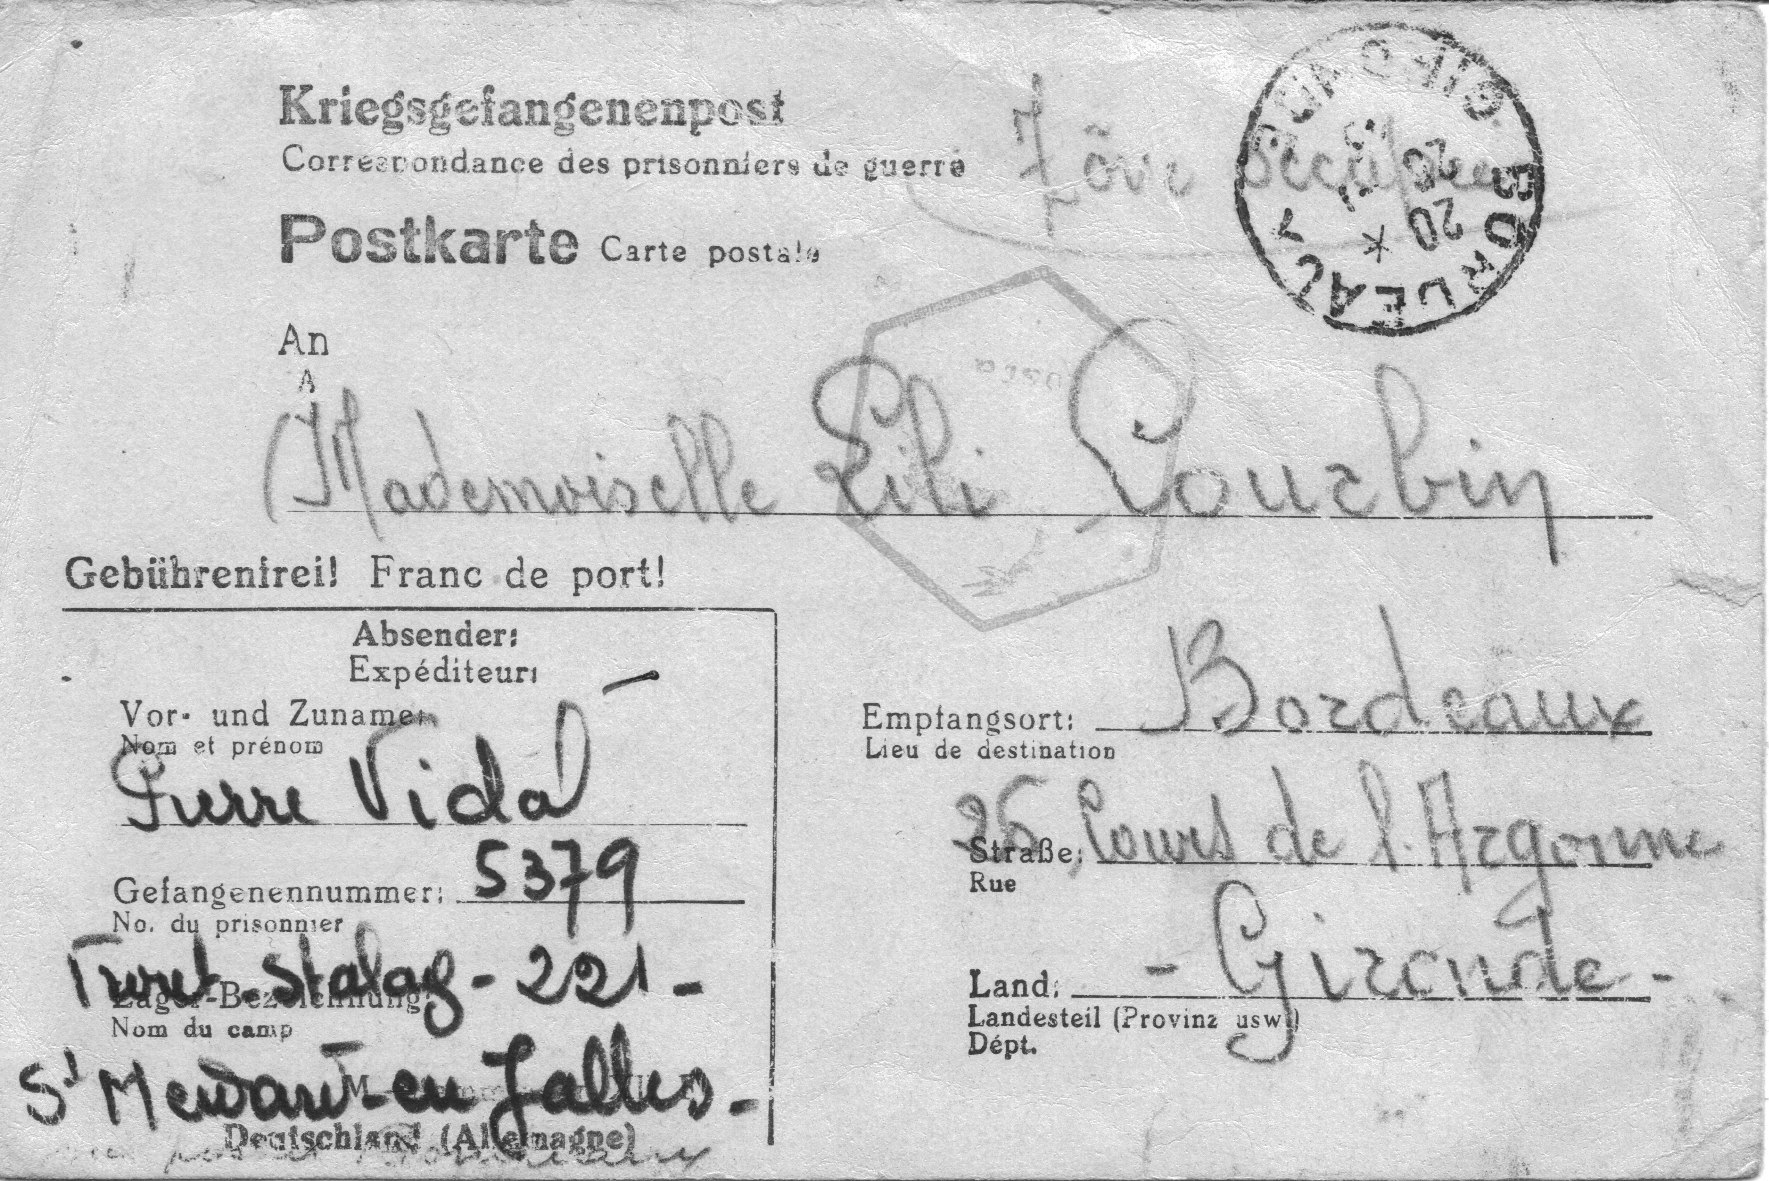 Kriegsgefangenenpost
Correspondance des prisonniers de guerre
Zône occupée
Postkarte Carte postale
BORDEAUX
GIRONDE
20
An
A
Mademoiselle Lili Courbin
Gebührenfrei! Franc de port!
Absender:
Expéditeur:
Vor- und Zuname:
Nom et prénom
Pierre Vidal
Gefangenennummer: 5379
No. du prisonnier
Front-Stalag-221-
Lager-Bezeichnung:
Nom du camp
St Medard-en Jalles-
Deutschland (Allemagne)
Bordeaux
Empfangsort: Bordeaux
Lieu de destination
26, Cours de l'Argonne
Straße:
Rue
Land: - Gironde -
Landesteil (Provinz usw.)
Dépt.